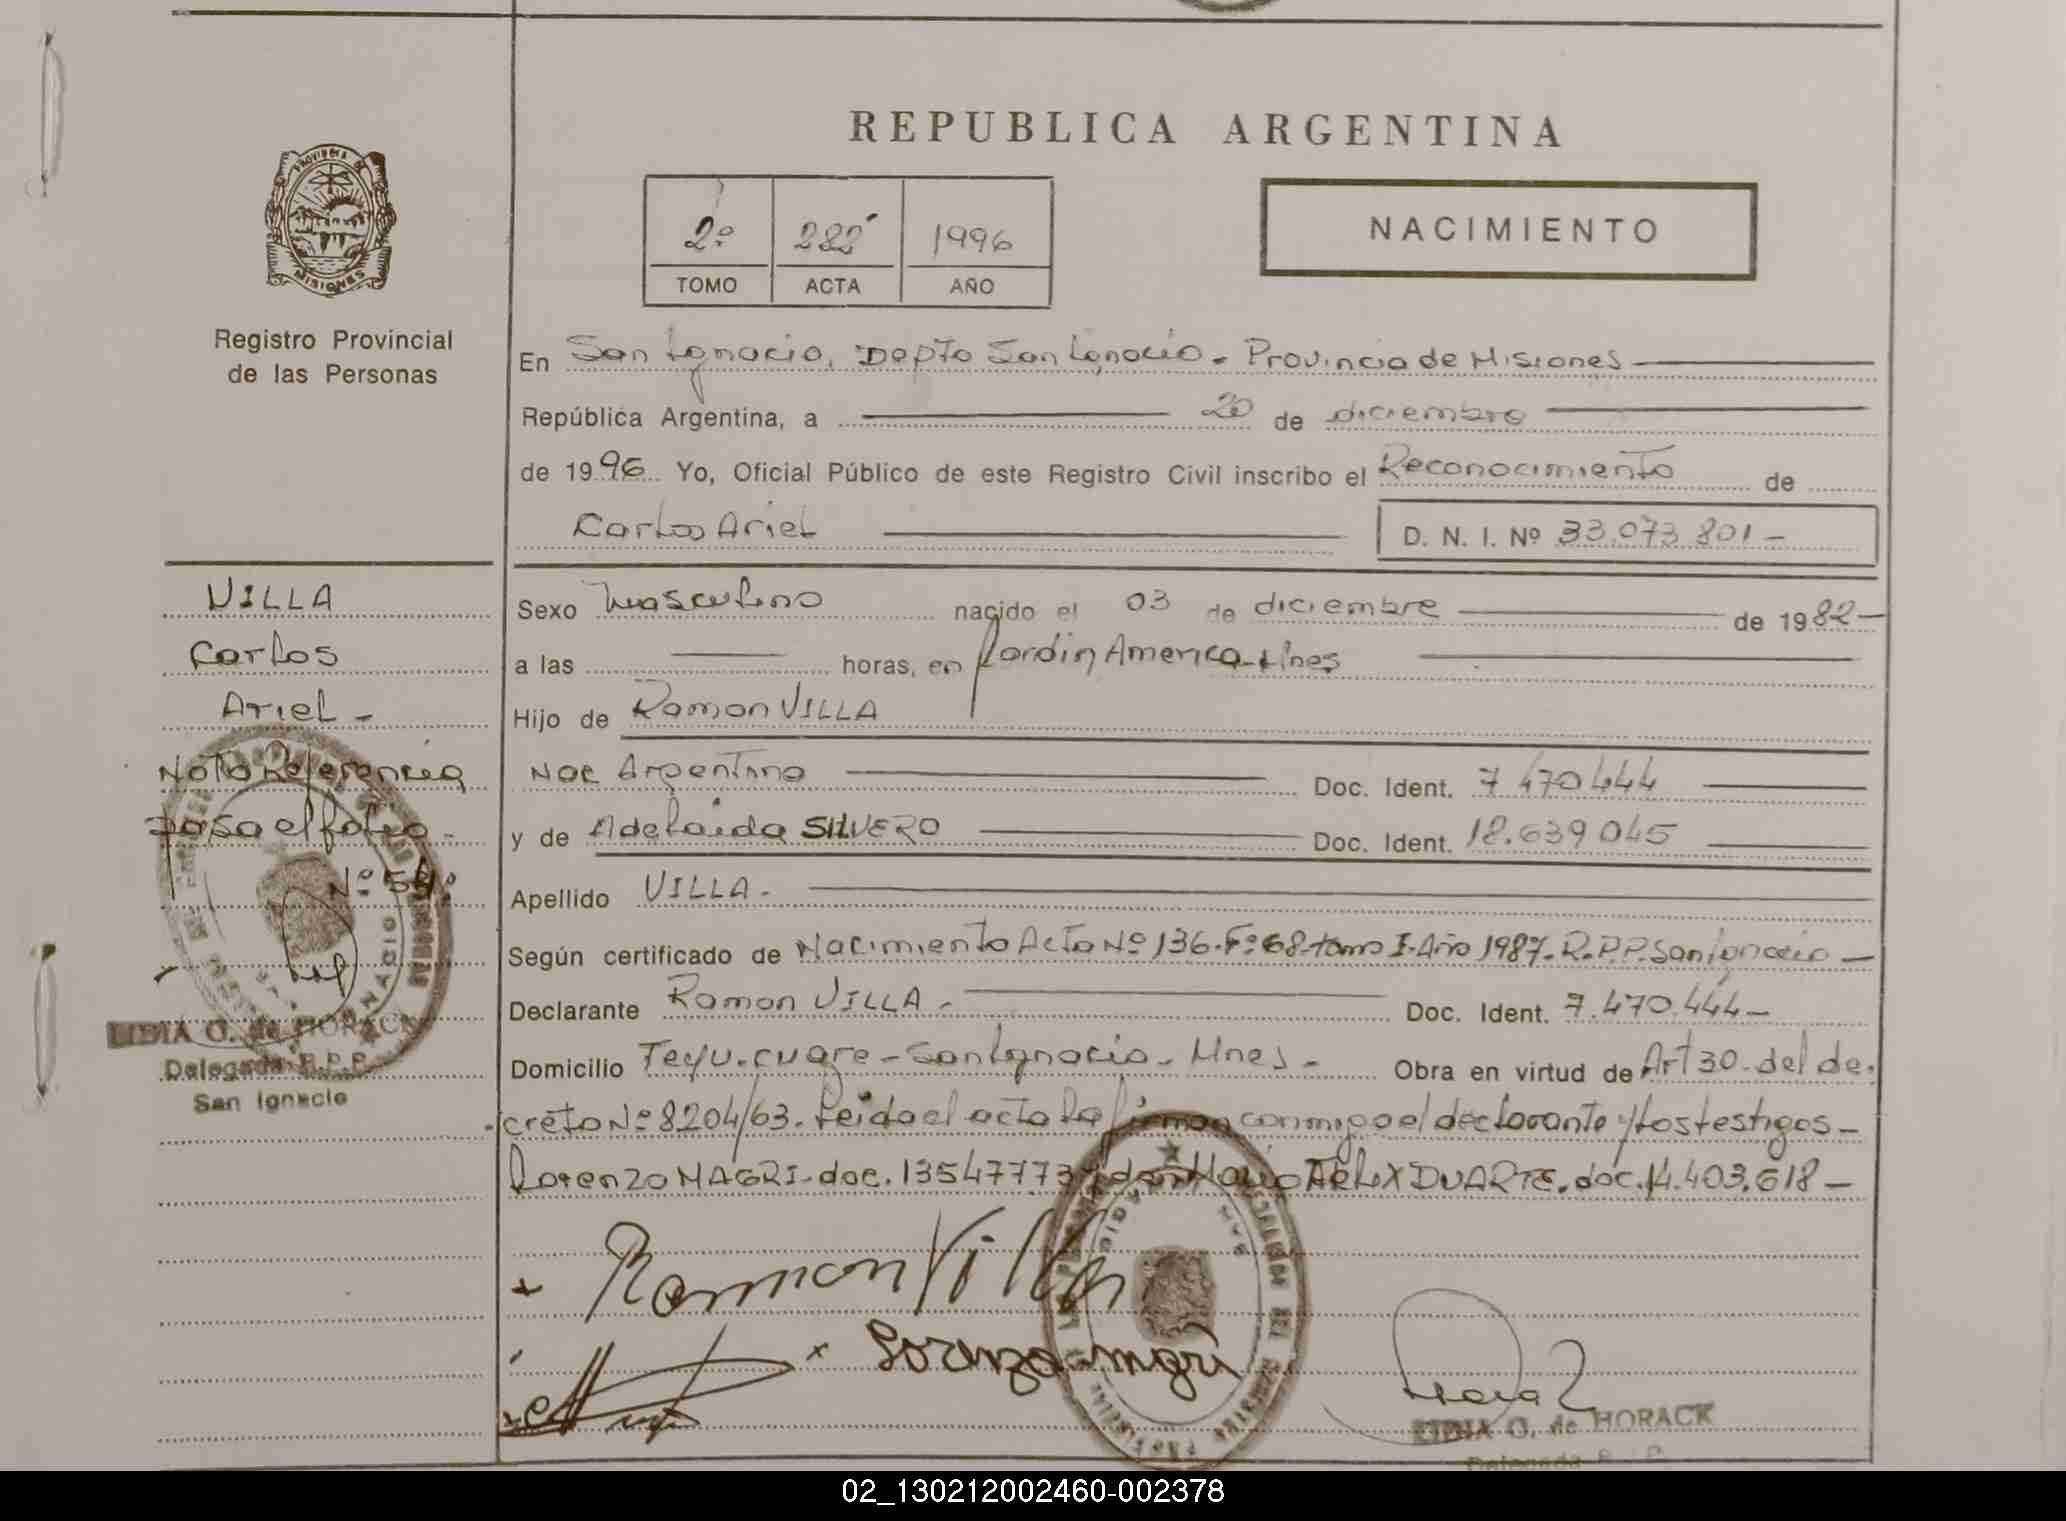 REPUBLICA ARGENTINA
PROVINCIA DE
MISIONES
Registro Provincial
de las Personas
2º 282 1996
TOMO ACTA AÑO
NACIMIENTO
En San Ignacio, Depto San Ignacio - Provincia de Misiones
República Argentina, a 20 de diciembre
de 1996 Yo, Oficial Público de este Registro Civil inscribo el Reconocimiento de
Carlos Ariel D. N. I. Nº 33.073.801-
VILLA
Carlos
Ariel -
Nota Referencia
pasa el folio
Nº 54
LIDIA O. de HORACK
Delegada R.P.P.
San Ignacio
Sexo Masculino nacido el 03 de diciembre de 1982-
a las horas, en Jardin America-Mnes
Hijo de Ramon VILLA
Nac Argentino Doc. Ident. 7 470 444
y de Adelaida SILVERO Doc. Ident. 18.639 045
Apellido VILLA -
Según certificado de Nacimiento Acta Nº 136. Fº 68. tomo I. Año 1987. R.P.P. San Ignacio -
Declarante Ramon VILLA - Doc. Ident. 7.470.444-
Domicilio Teyu-cuare - San Ignacio - Mnes - Obra en virtud de Art 30. del de-
creto Nº 8204/63. Leida el acta la firman conmigo el declarante y los testigos -
Lorenzo MAGRI. doc. 13547773 y don Mario FELIX DUARTE. doc. 14.403.618 -
Ramon Villa
Lorenzo magri
LIDIA O. de HORACK
Delegada R.P.P.
02_130212002460-002378